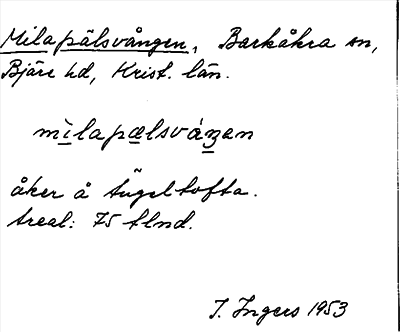 Milapälsvången, Barkåkra sn,
Bjäre hd, Krist. län.
mìlapælsváŋen
åker å Tügeltofta.
Areal: 75 tlnd.
I. Ingers 1953